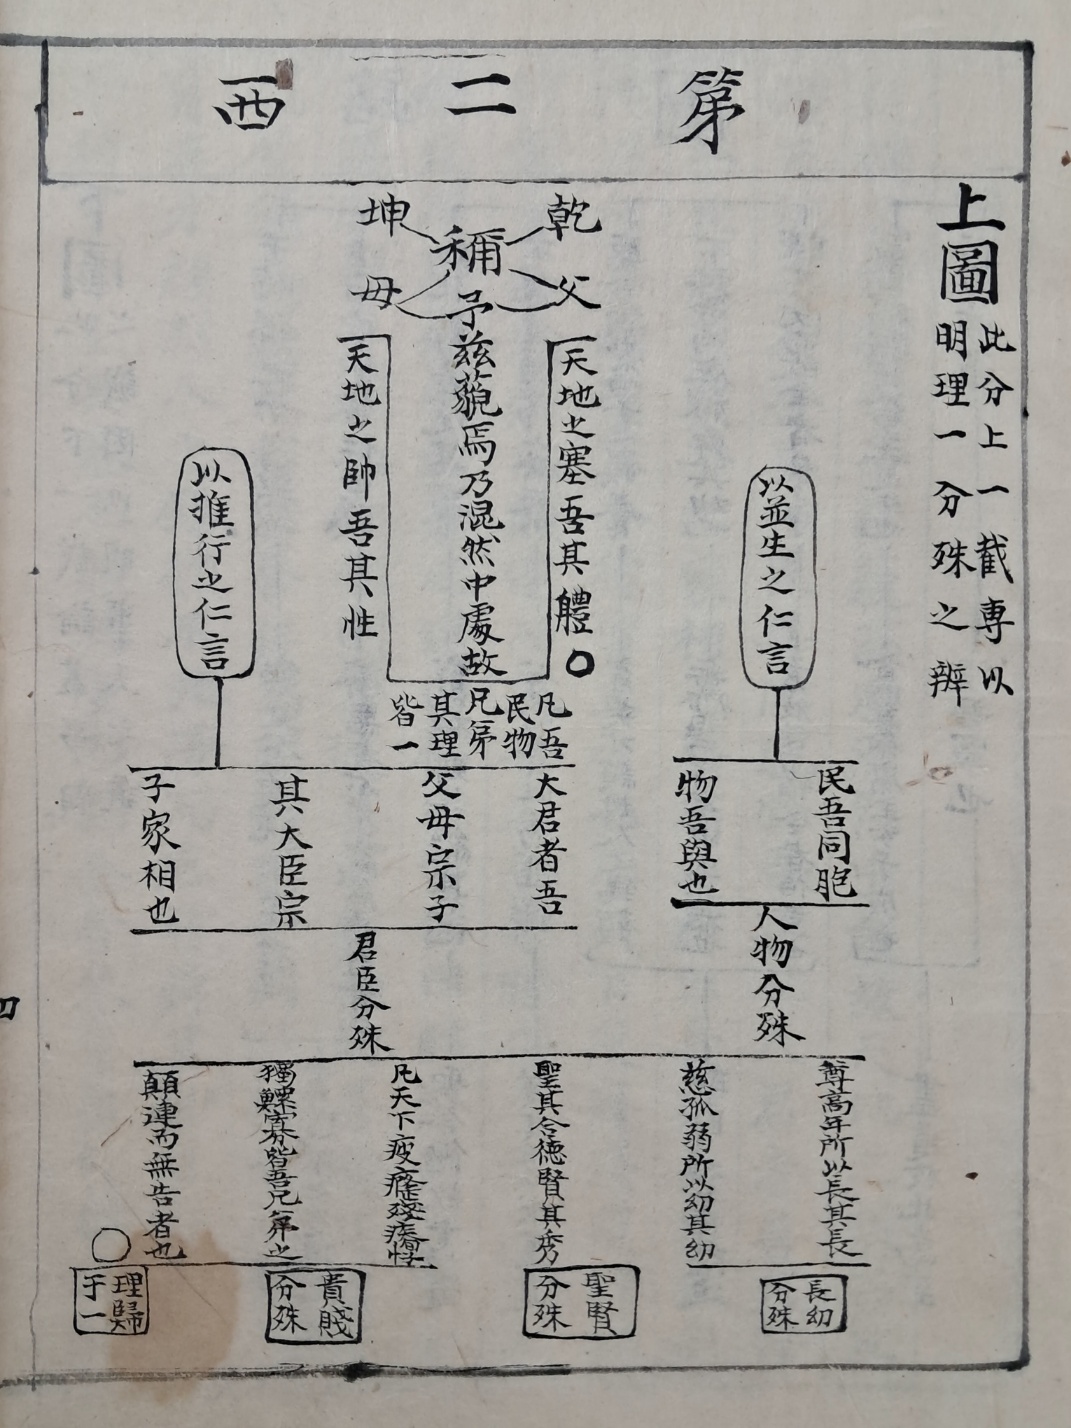 第二西
上圖
此分上一截專以
明理一分殊之辨
乾父
坤母
稱
予茲藐焉乃混然中處故
天地之塞吾其體○
天地之帥吾其性
凡吾
民物
兄弟
其理
皆一
以並生之仁言
民吾同胞
物吾與也
人物分殊
以推行之仁言
大君者吾
父母宗子
其大臣宗
子家相也
君臣分殊
尊高年所以長其長
慈孤弱所以幼其幼
聖其合德賢其秀
凡天下疲癃殘疾惸
獨鰥寡皆吾兄弟之
顛連而無告者也
○
長幼
分殊
聖賢
分殊
貴賤
分殊
理歸
于一
四